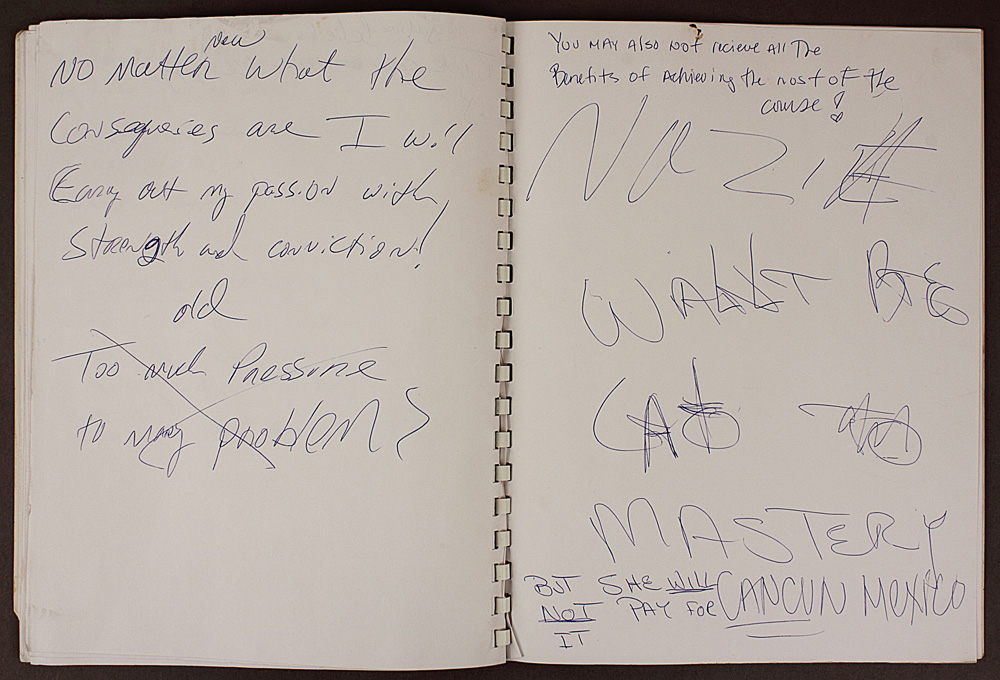 New
No Matter what the
Consequences are I will
Carry out my passion with
Strength and conviction!
old
Too much Pressure
to many problems
You may also not recieve All The
Benefits of Achieving the rest of the
course!
NAZIE
WANT BE
MASTERY
BUT SHE WILL CANCUN MEXICO
NOT PAY FOR
IT